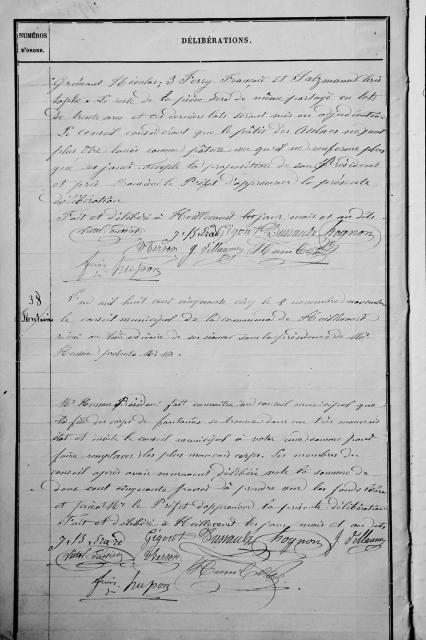 NUMÉROS
D'ORDRE.
DÉLIBÉRATIONS.
Grimont Nicolas, 3 Ferry François et Salzmann Chris
tophe. Le reste de la pièce sera de même partagé en lots
de trente ares et ces derniers lots seront mis en adjudication.
Le conseil considérant que le pâtis des ne peut
plus être loué comme pâture, vu qu'il ne renferme plus
que des joncs, accepte la proposition de son Président
et prie Monsieur le Préfet d'approuver la présente
délibération
Fait et délibéré à Heillecourt les jour, mois et an dits
J. B. Gigout Dussaulx Hognon
Therson J. Villaume Humbert
Hupon
38
Fontaines
L'an mil huit cent cinquante cinq le 8 novembre
le conseil municipal de la commune de Heillecourt
réuni au lieu ordinaire de ses séances sous la présidence de Mr
présents MM.
Mr Président fait connaître au conseil municipal que
la file des corps de fontaines se trouve dans un très mauvais
état et invite le conseil municipal à voter une somme pour
faire remplacer les plus mauvais corps. Les membres du
conseil après avoir mûrement délibéré vote la somme de
deux cent cinquante francs à prendre sur les fonds libres
et prie Mr le Préfet d'approuver la présente délibération
Fait et délibéré à Heillecourt les jour mois et an dits
J. B. Gigout Dussaulx Hognon J. Villaume
Therson
Humbert
Hupon